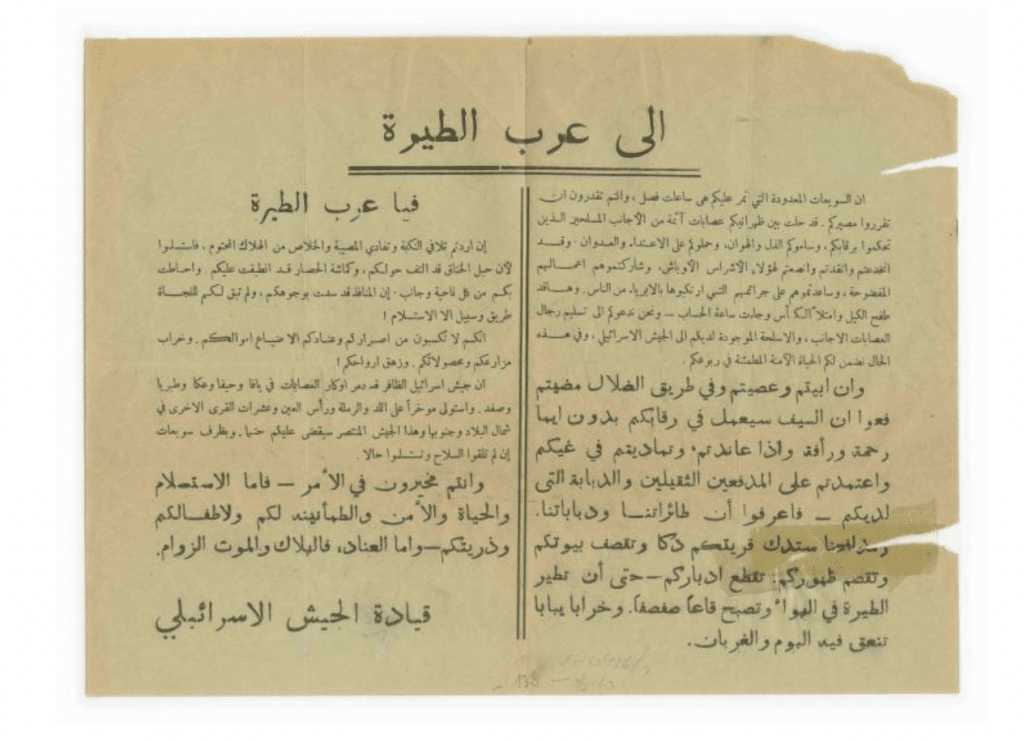 الى عرب الطيرة
ان السويعات المعدودة التي تمر عليكم هى ساعات فصل ، وانتم تقدرون ان
تقرروا مصيركم . قد حلت بين ظهرانيكم عصابات آئمة من الأجانب المسلحين الـذين
تحكموا برقابكم ، وساموكم الذل والهوان، وحملوكم على الاعتداء والعـدوان . وقـد
انخدعتم وانقدتم وانصعتم لهؤلاء الأشراس الأوباش، وشاركتموهم اعمـالهـم
المفضوحة ، وساعدتموهم على جرائمهم التـي ارتكبوها بالابرياء من الناس . وهـا قـد
طفح الكيل وامتلأ الكـأس وجاءت ساعة الحساب — ونحن ندعوكم الى تسليم رجال
العصابات الاجانب ، والاسلحة الموجودة لديكم الى الجيش الاسرائيلي ، وفي هـذه
الحال نضمن لكم الحياة الآمنة المطمئنة في ربوعكم .
وان ابيتم وعصيتم وفي طريق الضلال مضيتم
فعوا ان السيف سيعمل في رقابكم بدون ايما
رحمة ورأفة واذا عاندتم، وتماديتم في غيكم
واعتمدتم على المدفعين الثقيلين والدبابة التى
لديكم – فاعرفوا أن طائراتنـا ودباباتنا.
ومدافعنا ستدك قريتكم دكا وتقصف بيوتكم
وتقصم ظهوركم: تقطع ادباركم – حتى أن تطير
الطيرة في الهواء وتصبح قاعاً صفصفاً. وخرابا يبابا
تنعق فيه البوم والغربان.
فيا عرب الطيرة
إن اردتم تلافي النكبة وتفادي المصيبة والخلاص من الهلاك المحتوم ، فاستـلـوا
لأن حبل الخناق قد التف حولـكم ، وكماشة الحصار قـد انطبقت عليكم . واحـاطت
بكـم من كل ناحية وجانب . إن المنافذ قد سدت بوجوهكم ، ولم تبق لـكـم للنجـاة
طريق وسبيل الا الاستسلام !
انكـم لا تكسبون من اصراركم وعنادكم الا ضياع اموالكـم . وخراب
مزارعكم ومحصولاتكم . وزهق ارواحكم !
ان جيش اسرائيل الظافر قد دمر اوكار العصابات في يافا وحيفا وعكا وطبريا
وصفد . واستولى موخراً على اللد والرملة ورأس العين وعشرات القرى الاخرى في
شمال البلاد وجنوبها وهذا الجيش المنتصر سيقضي عليكم حتـما . وبظرف سويعات
إن لم تلقوا السلاح وتستـلـوا حالا .
وانتم مخيرون في الأمر – فاما الاستسلام
والحياة والأمن والطمأنينه لكم ولاطفـالكم
وذريتكم – واما العناد، فالهلاك والموت الزوام.
قيادة الجيش الاسرائيلي